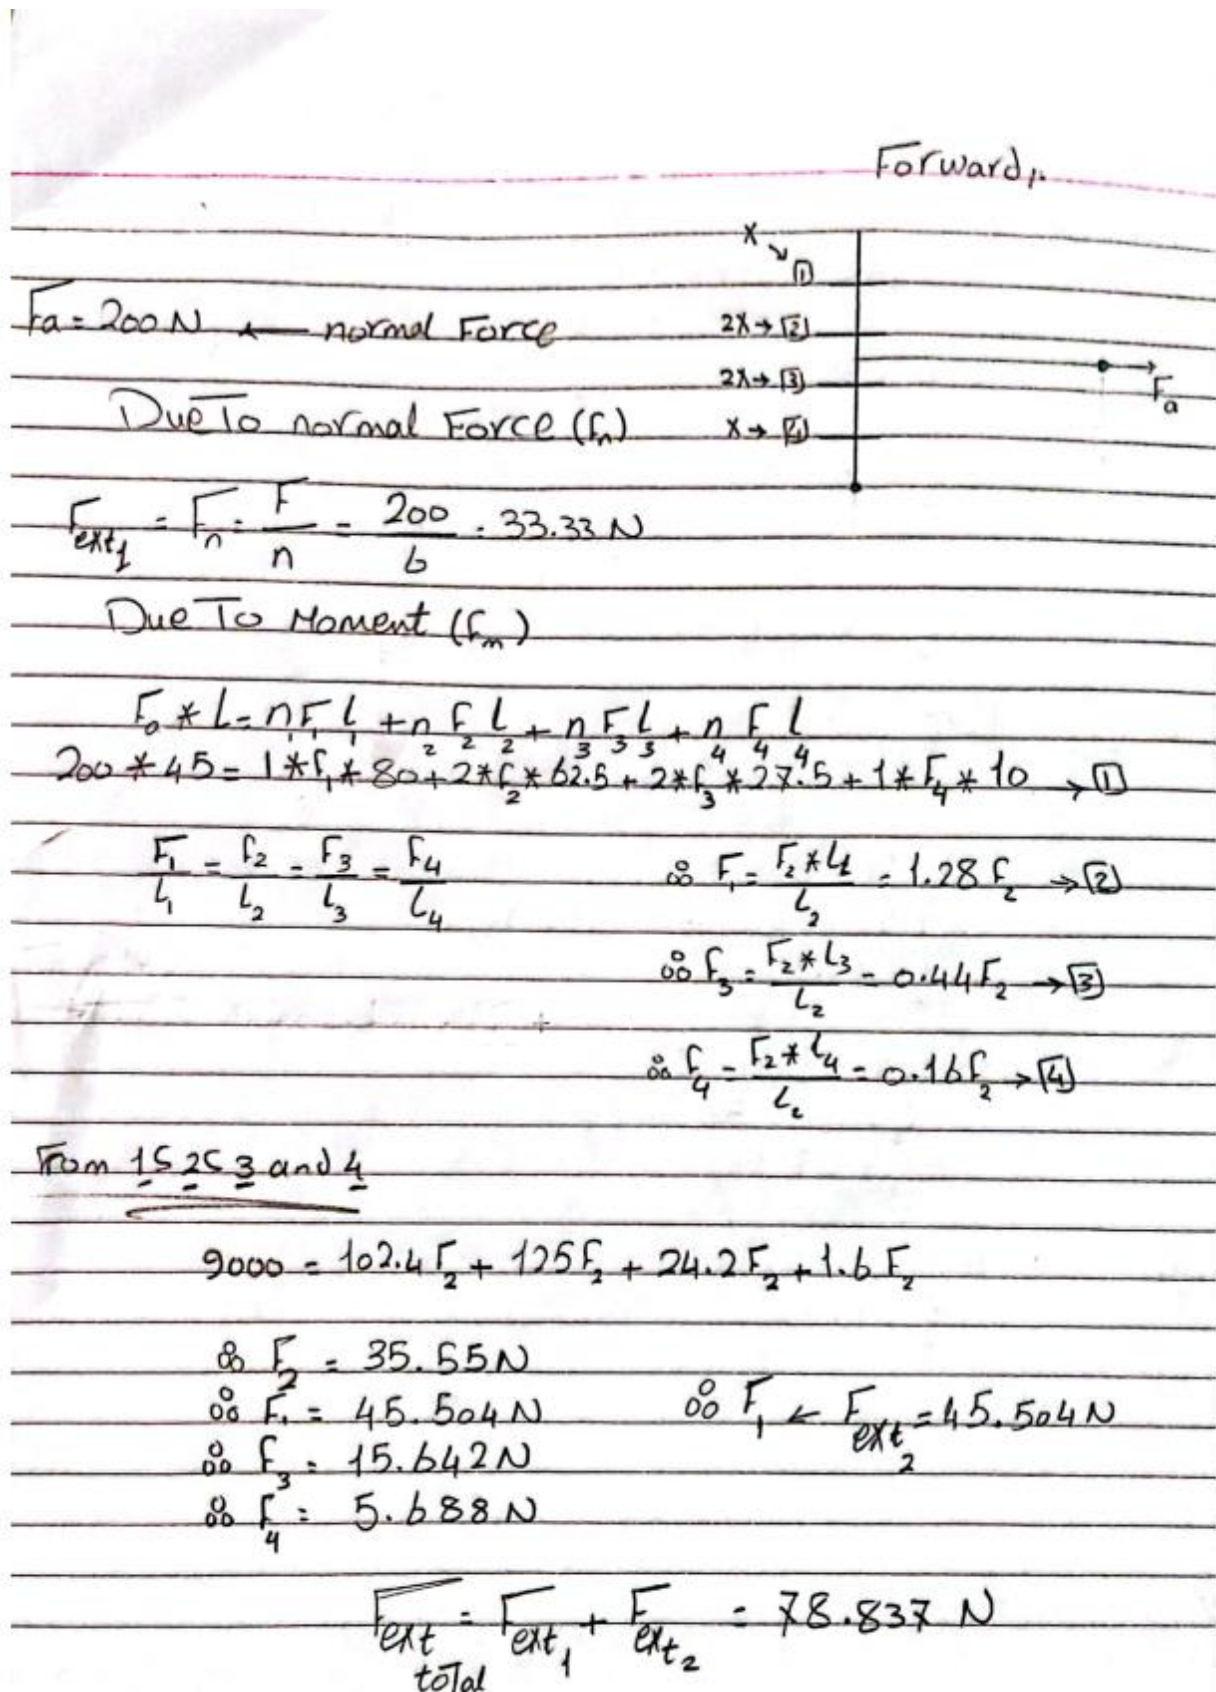 Forward,,
x → 1
Fa = 200 N ← normal Force
2x → 2
2x → 3
Fa
Due To normal Force (Fn)
x → 4
Fext1 = Fn = F/n = 200/6 = 33.33 N
Due To Moment (Fm)
Fo * L = n1 F1 L1 + n2 F2 L2 + n3 F3 L3 + n4 F4 L4
200 * 45 = 1 * F1 * 80 + 2 * F2 * 62.5 + 2 * F3 * 27.5 + 1 * F4 * 10 → 1
F1/L1 = F2/L2 = F3/L3 = F4/L4
∴ F1 = F2 * L1/L2 = 1.28 F2 → 2
∴ F3 = F2 * L3/L2 = 0.44 F2 → 3
∴ F4 = F2 * L4/L2 = 0.16 F2 → 4
From 1, 2, 3 and 4
9000 = 102.4 F2 + 125 F2 + 24.2 F2 + 1.6 F2
∴ F2 = 35.55 N
∴ F1 = 45.504 N
∴ F1 ← Fext2 = 45.504 N
∴ F3 = 15.642 N
∴ F4 = 5.688 N
Fext total = Fext1 + Fext2 = 78.837 N